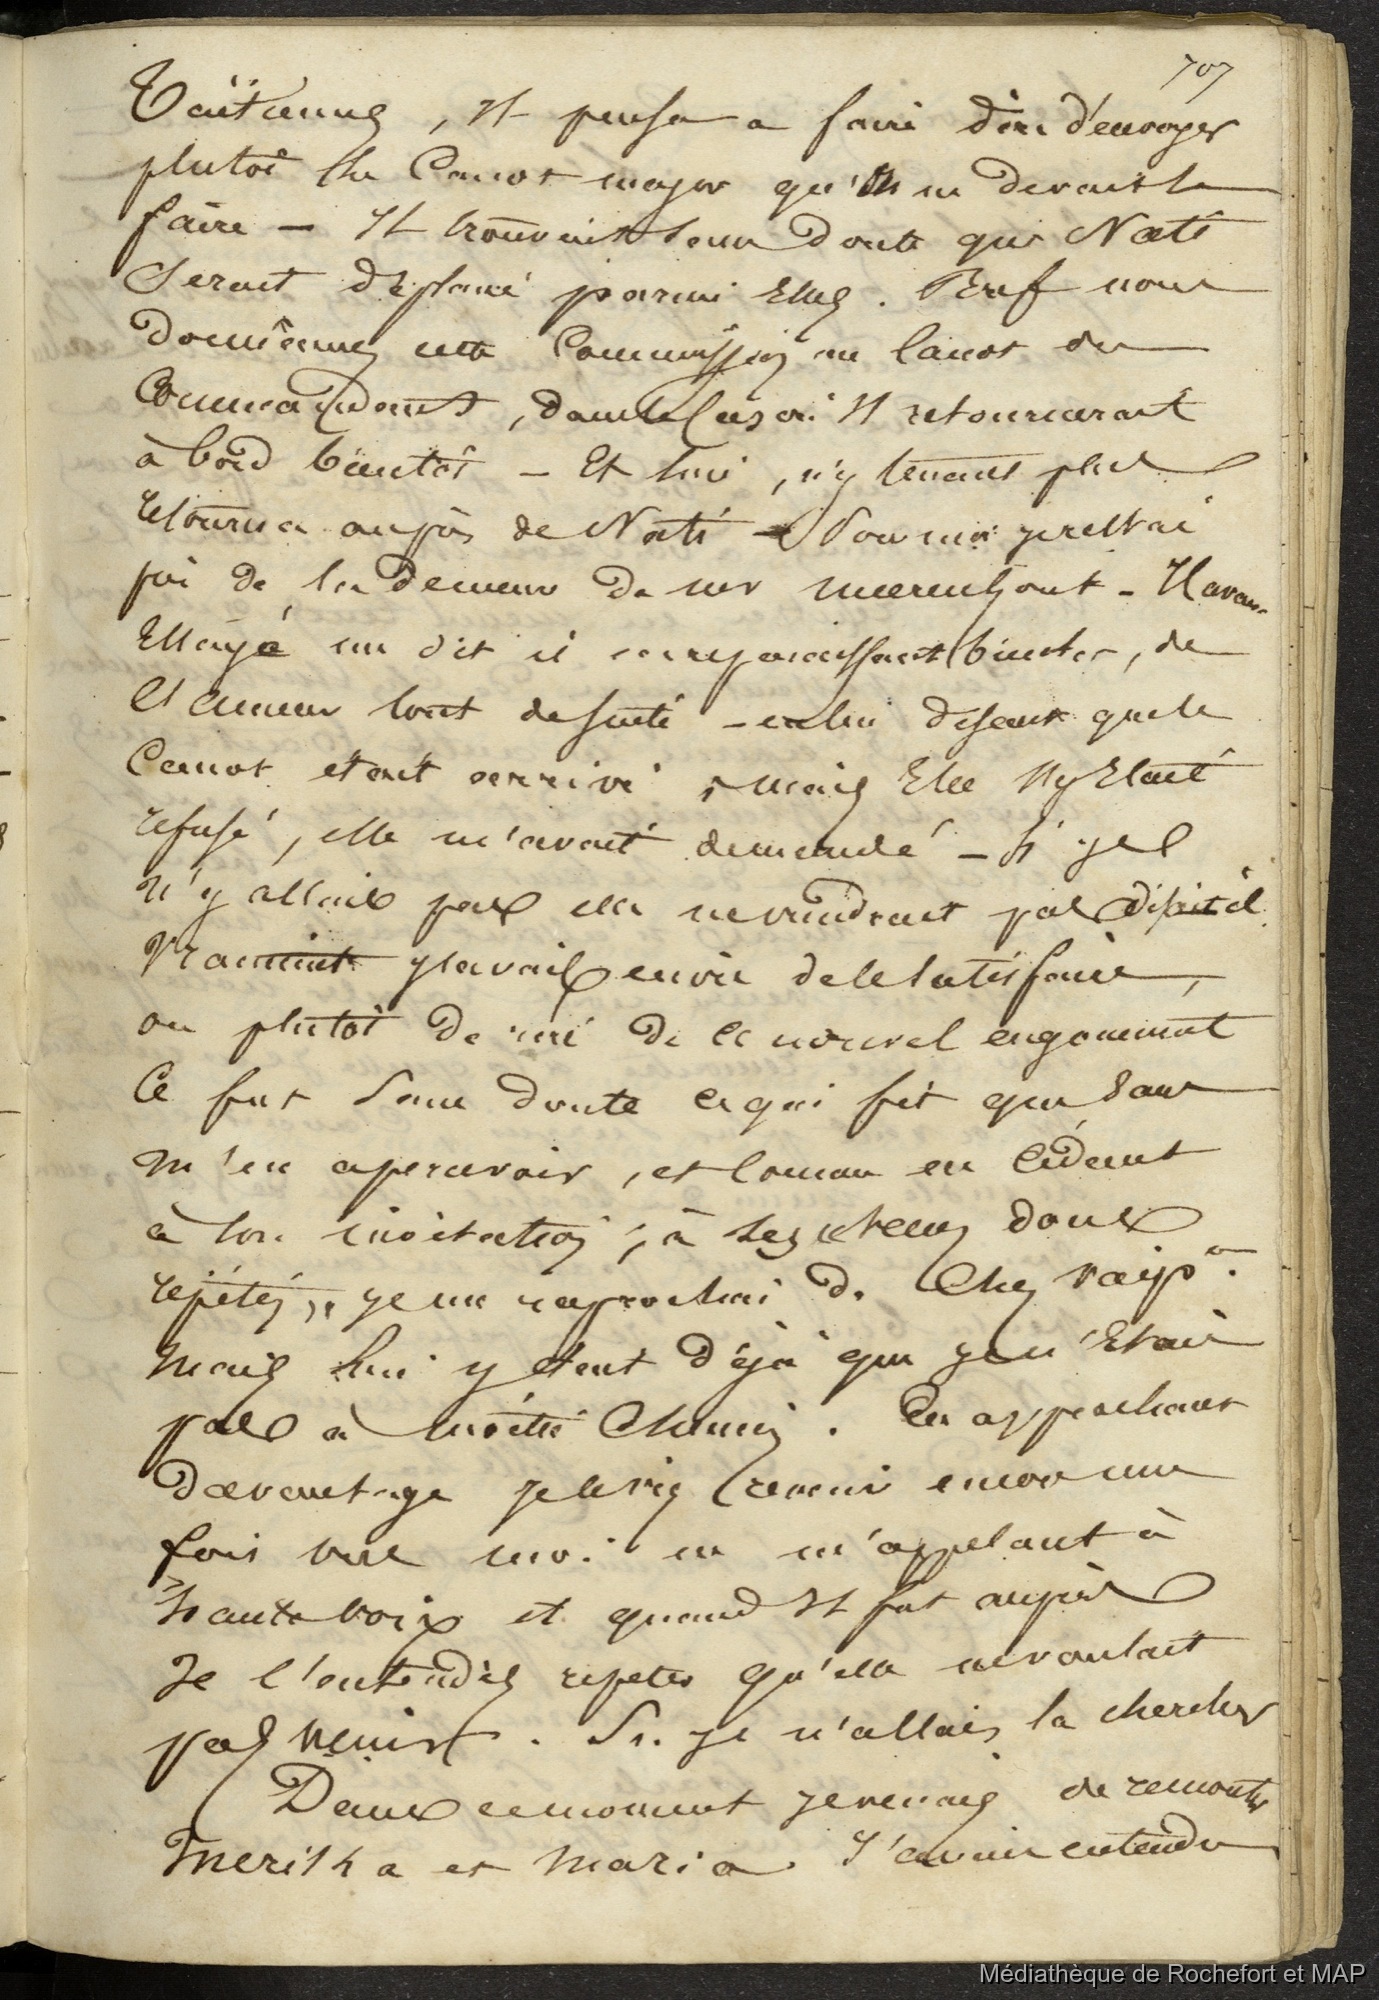 707
Taïtiennes, Il pensa a faire dire d'envoyer
plutot le Canot major qu'il ne devait le
faire — Il trouvait sans doute que Nati
Serait déplacé parmi Elles. Bref nous
donnâmes cette Commission au Canot du
Commandant, dans le Cas où Il retournerait
à bord bientôt — Et lui, n'y tenant plus
retourna auprès de Nati — Pour moi je restai
près de la demeure de mr merenhout — Il avait
Essayé me dit il en reparaissant bientot, de
l'amener tout de suite — en lui disant que le
Canot était arrivé, mais Elle s'y Etait
refusé, elle m'avait demandé — Si je
n'y allais pas elle ne viendrait pas disait il.
Vraiment j'avais envie de le satisfaire,
ou plutot de rire de ce nouvel engouement
Ce fut Sans doute ce qui fit que Sans
m'en apercevoir, et comme en Cédant
à son invitation, à ses « venez donc
répétés », je me raprochai de Chez Vaïpo.
mais lui y etait déjà que je n'étais
pas à moitié Chemin. En approchant
davantage je le vis revenir encore une
fois vers moi en m'appelant à
haute voix et quand Il fut auprès
Je l'entendis repeter qu'elle ne voulait
pas venir. Si je n'allais la chercher
Dans ce moment je venais de remonter
Meritha et Maria. J'avais entendu
Médiathèque de Rochefort et MAP